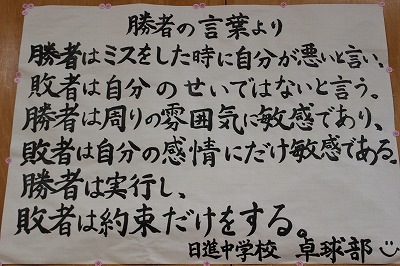 勝者の言葉より
勝者はミスをした時に自分が悪いと言い、
敗者は自分のせいではないと言う。
勝者は周りの雰囲気に敏感であり、
敗者は自分の感情にだけ敏感である。
勝者は実行し、
敗者は約束だけをする。
日進中学校 卓球部